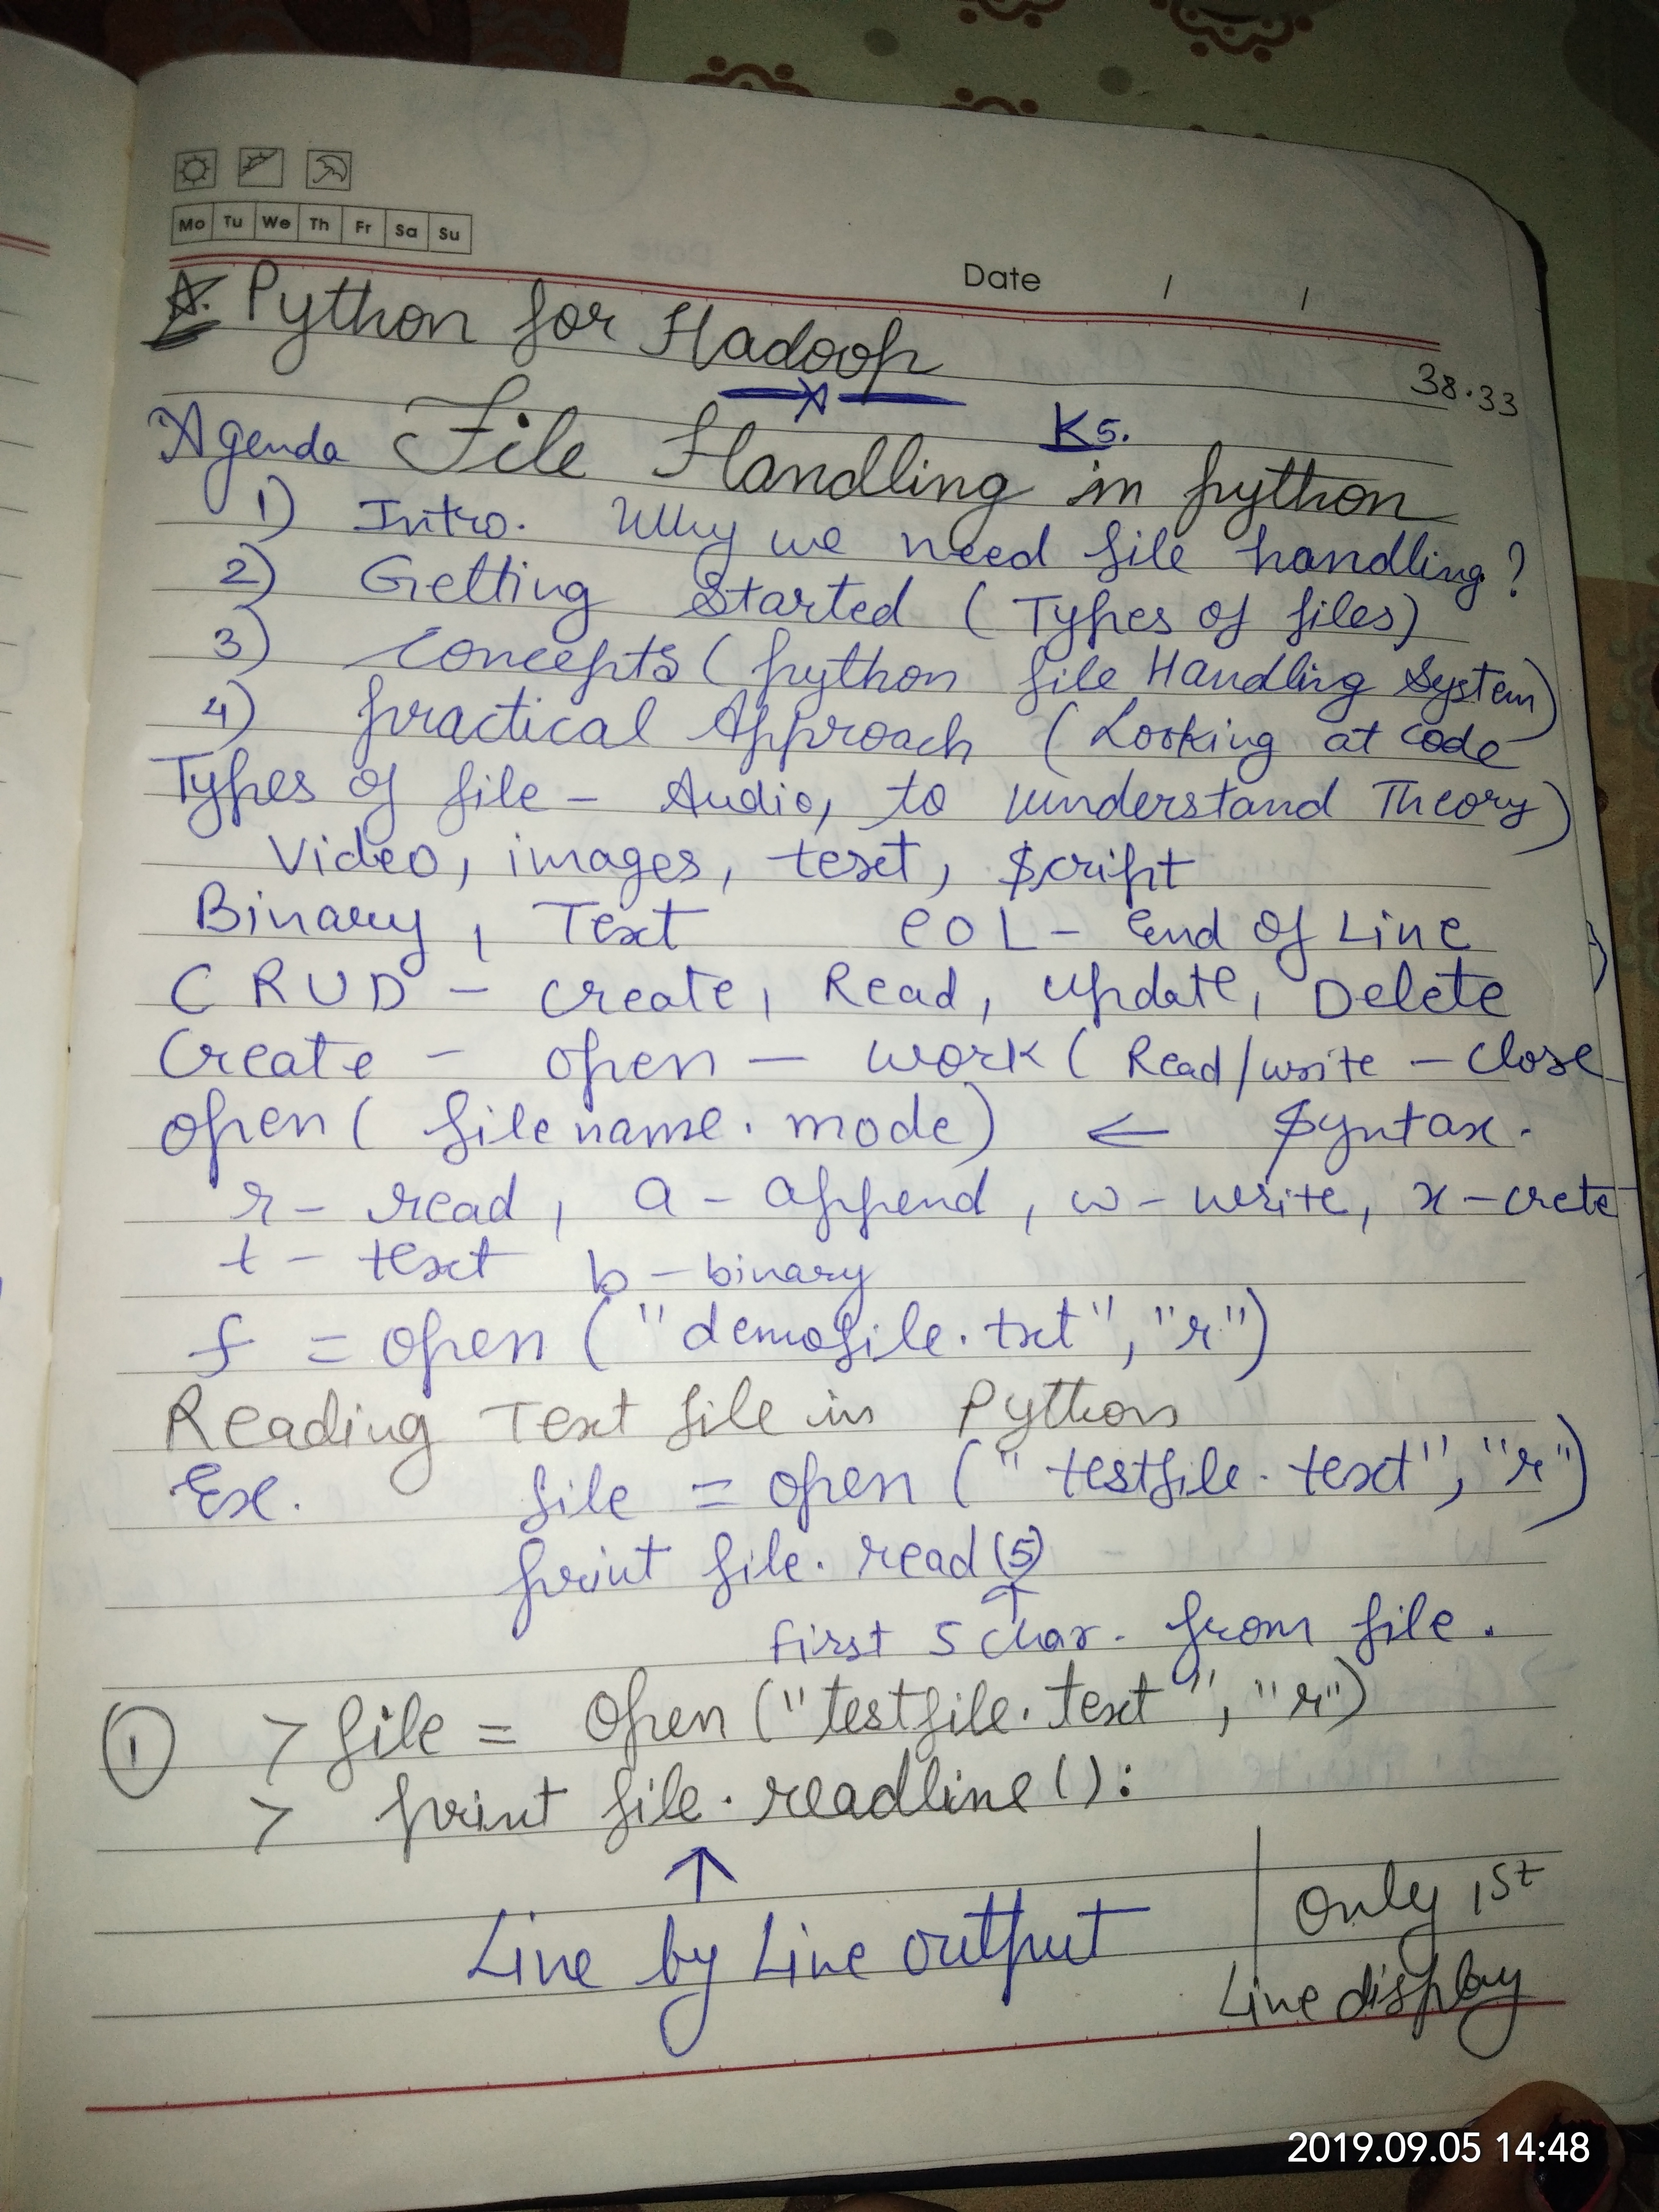 Mo Tu We Th Fr Sa Su
Date / /
A. Python for Hadoop
38.33
K5.
Agenda File Handling in python
1) Intro. Why we need file handling?
2) Getting Started (Types of files)
3) Concepts (python file Handling System)
4) practical Approach (Looking at code
Types of file - Audio, to understand Theory)
Video, images, text, script
Binary, Text EOL - End of Line
CRUD - create, Read, update, Delete
Create - open - work (Read/write - close
open( filename. mode) ← Syntax.
r - read, a - append, w - write, x - crete
t - text b - binary
f = open ("demofile.txt", "r")
Reading Text file in Python
Ex. file = open ("testfile.text", "r")
print file.read(5)
↑
first 5 char. from file.
1 > file = open ("testfile.text", "r")
> print file.readline():
↑
Line by Line output
Only 1st
Line display
2019.09.05 14:48